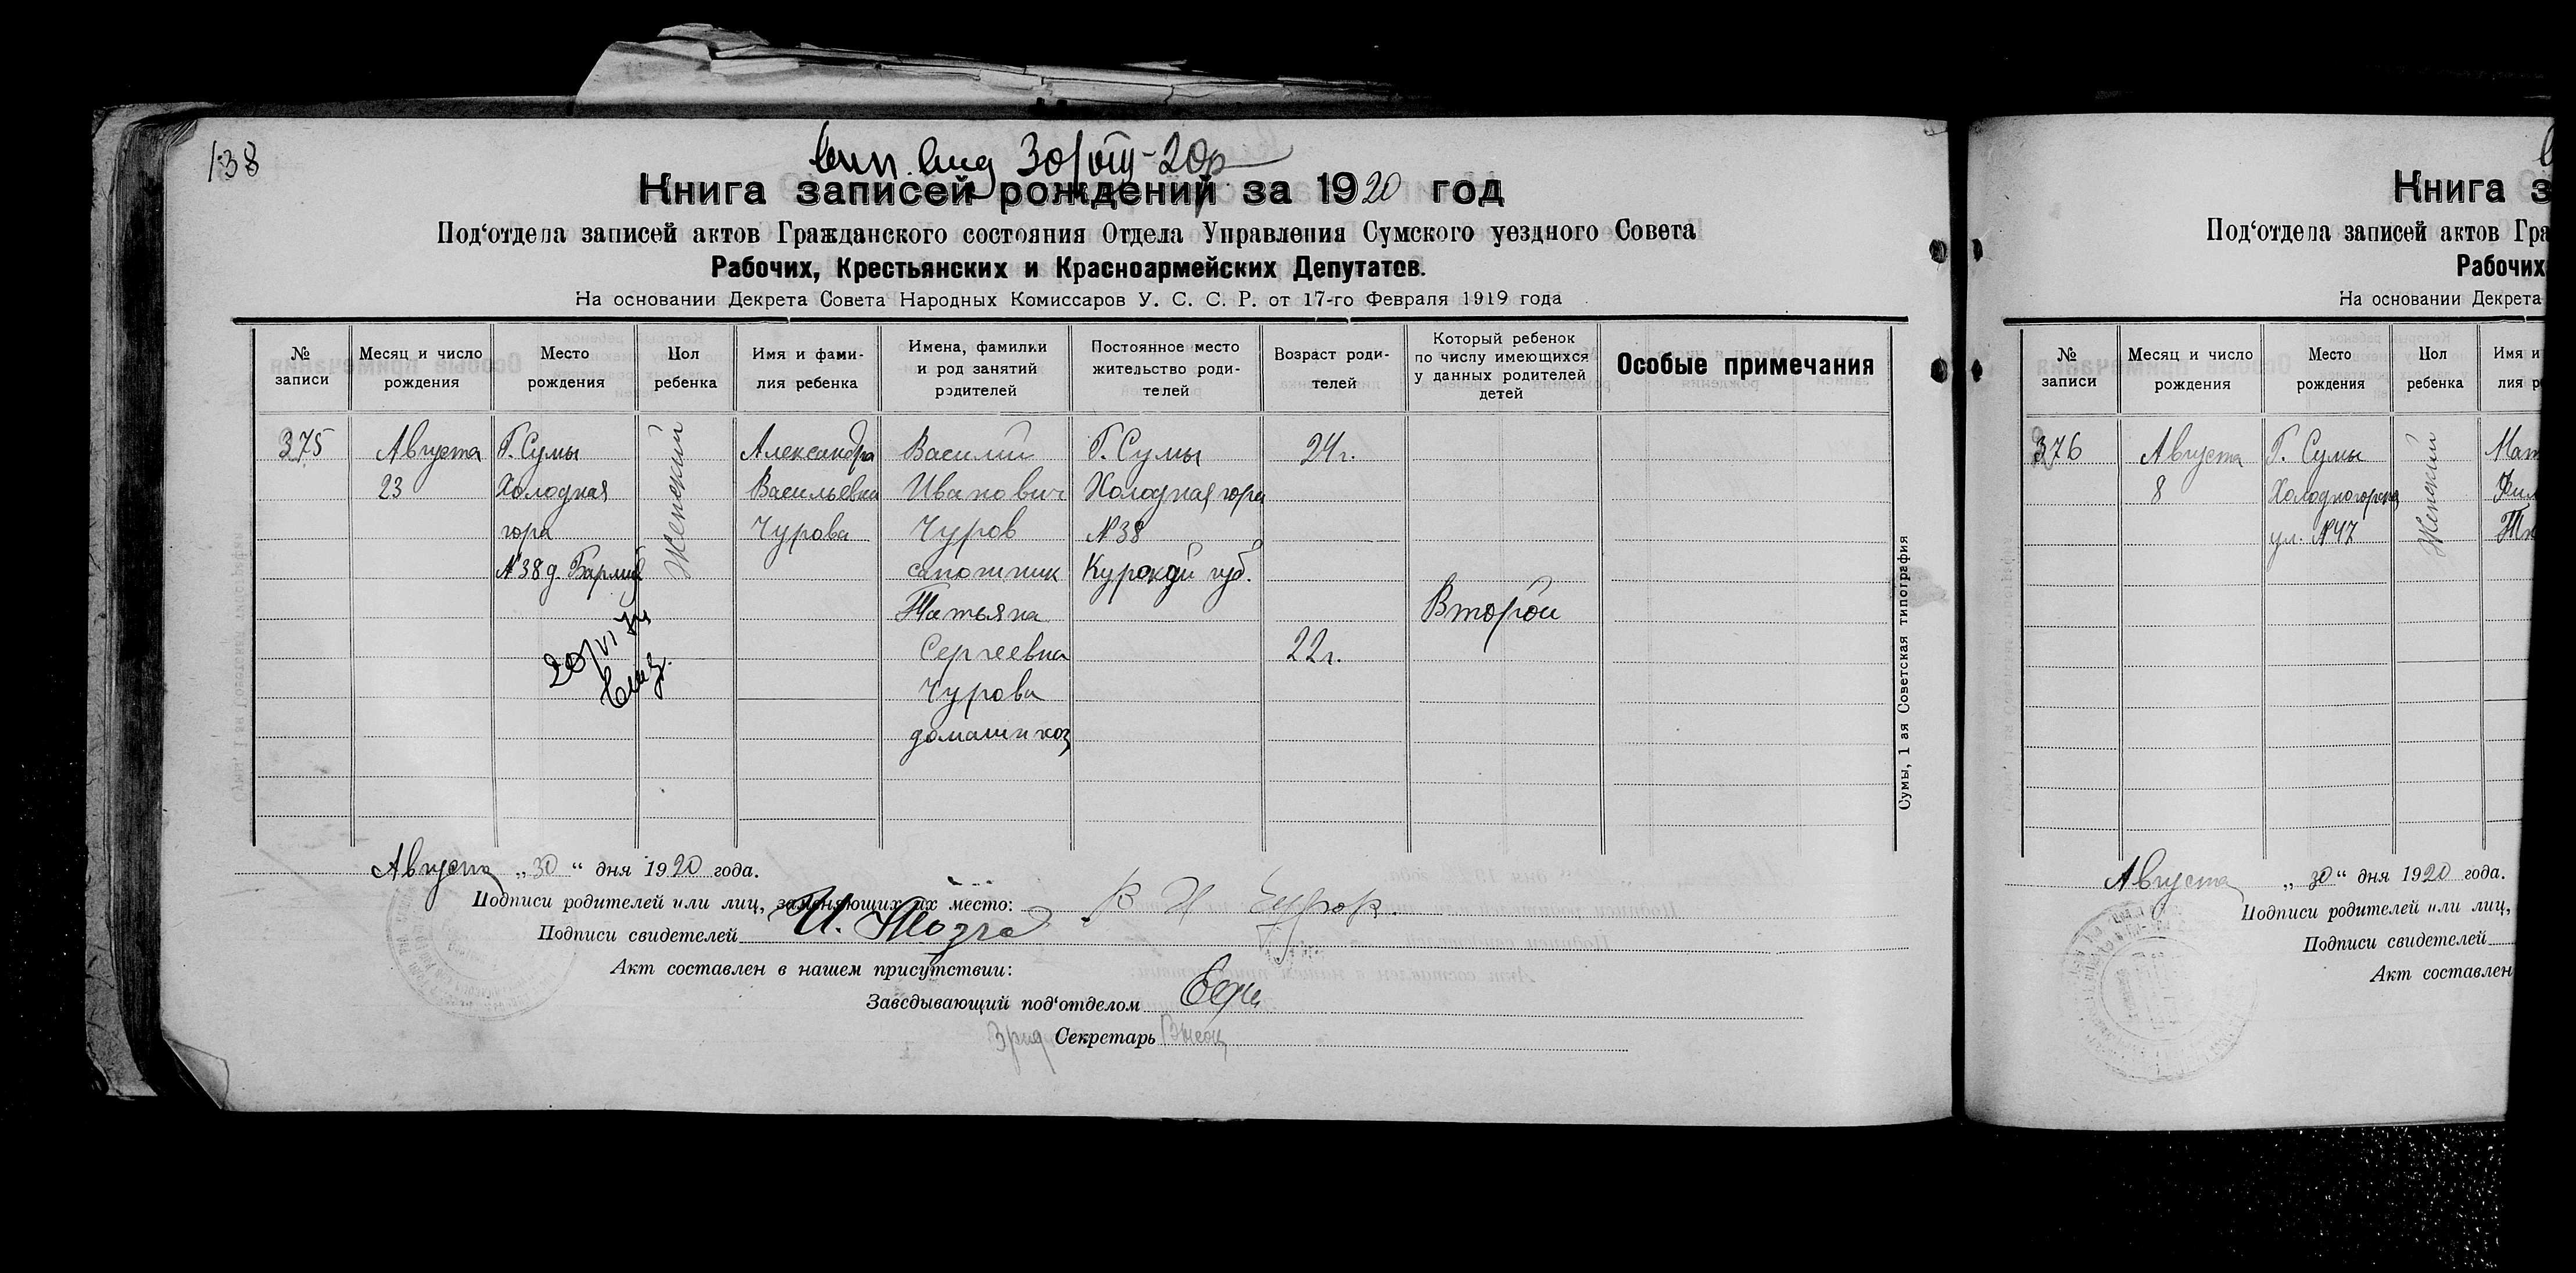 138
30/VIII-20р
Книга записей рождений за 1920 год
Под‘отдела записей актов Гражданского состояния Отдела Управления Сумского уездного Совета
Рабочих, Крестьянских и Красноармейских Депутатов.
На основании Декрета Совета Народных Комиссаров У. С. С. Р. от 17-го Февраля 1919 года
№ записи
Месяц и число рождения
Место рождения
Пол ребенка
Имя и фами-
лия ребенка
Имена, фамилки
и род занятий
родителей
Постоянное место
жительство роди-
телей
Возраст роди-
телей
Который ребенок
по числу имеющихся
у данных родителей
детей
Особые примечания
375
Августа
23
Г. Сумы
Холодная
гора
№38 д.
20/VI
Женский
Александра
Васильевна
Чурова
Василий
Иванович
Чуров
сапожник
Татьяна
Сергеевна
Чурова
домашн хоз
Г. Сумы
Холодная гора
№38
Курской губ.
24 г.
22 г.
Второй
Сумы, 1 ая Советская типография
Августа „30“ дня 1920 года.
Подписи родителей или лиц, заменяющих их место: В И Чуров.
Подписи свидетелей
Акт составлен в нашем присутствии:
Заведывающий под‘отделом
Секретарь
Книга з
Под‘отдела записей актов Гра
Рабочих
На основании Декрета
№ записи
Месяц и число рождения
Место рождения
Пол ребенка
Имя и
лия р
376
Августа
8
Г. Сумы
Холодногорская
ул. №47
Женский
Августа „30“ дня 1920 года.
Подписи родителей или лиц,
Подписи свидетелей
Акт составлен